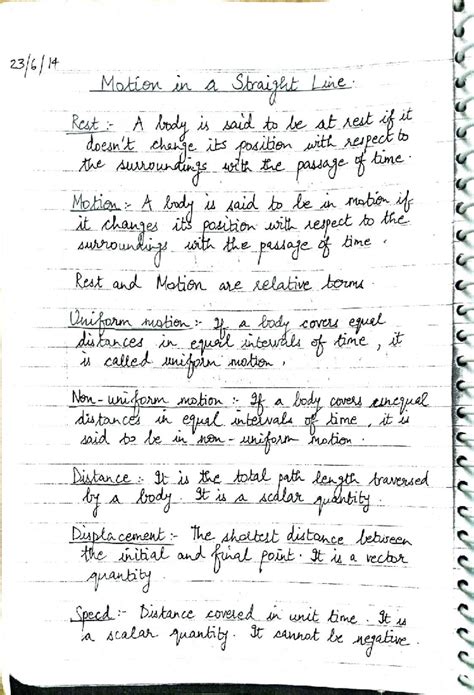 23/6/14
Motion in a Straight Line.
Rest :- A body is said to be at rest if it
doesn't change its position with respect to
the surroundings with the passage of time.
Motion :- A body is said to be in motion if
it changes its position with respect to the
surroundings with the passage of time.
Rest and Motion are relative terms.
Uniform motion :- If a body covers equal
distances in equal intervals of time, it
is called uniform motion.
Non-uniform motion :- If a body covers unequal
distances in equal intervals of time, it is
said to be in non-uniform motion.
Distance :- It is the total path length traversed
by a body. It is a scalar quantity.
Displacement :- The shortest distance between
the initial and final point. It is a vector
quantity.
Speed :- Distance covered in unit time. It is
a scalar quantity. It cannot be negative.